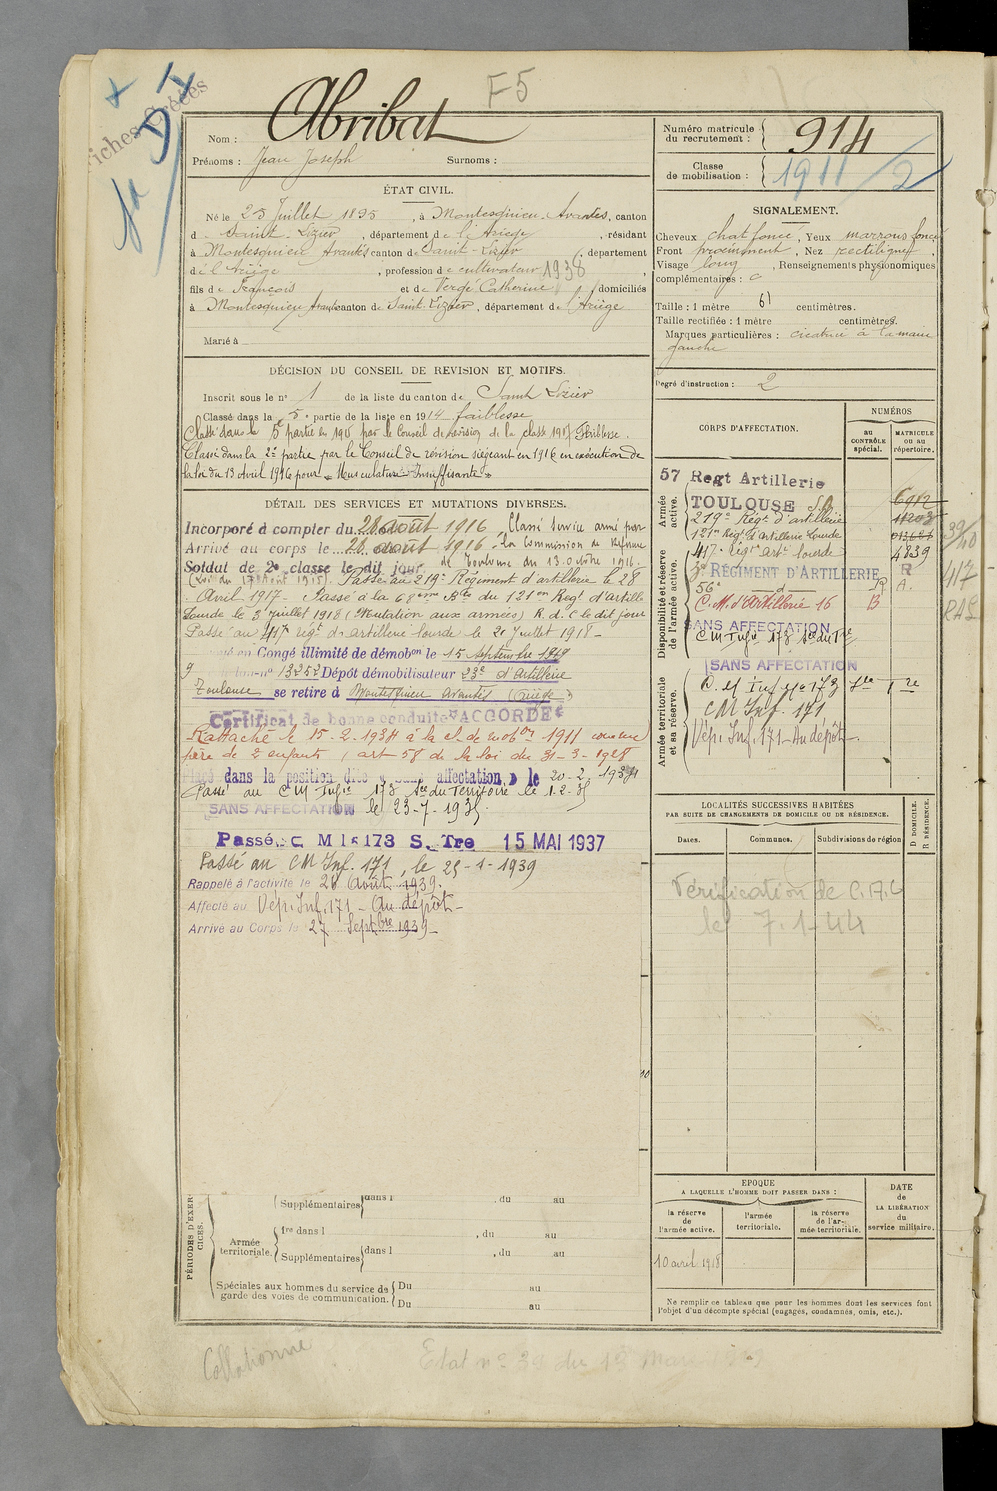 F5
Fiches Créées
Nom : Abribat
Prénoms : Jean Joseph Surnoms :
Numéro matricule du recrutement : 914
Classe de mobilisation : 1911/2
ÉTAT CIVIL.
Né le 25 Juillet 1895, à Montesquieu-Avantès, canton
d Saint-Lizier, département de l'Ariège, résidant
à Montesquieu Avantès canton de Saint-Lizier, département
de l'Ariège, profession de cultivateur 1938
fils de François et de Vergé Catherine domiciliés
à Montesquieu Avantès canton de Saint-Lizier, département de l'Ariège
Marié à
SIGNALEMENT.
Cheveux chat foncé, Yeux marrons foncé
Front proéminent, Nez rectiligne,
Visage long, Renseignements physionomiques
complémentaires :
Taille : 1 mètre 61 centimètres.
Taille rectifiée : 1 mètre centimètres.
Marques particulières : cicatrice à la main
gauche
Degré d'instruction : 2
DÉCISION DU CONSEIL DE REVISION ET MOTIFS.
Inscrit sous le n° 1 de la liste du canton de Saint Lizier
Classé dans la 5e partie de la liste en 1914 faiblesse
Classé dans la 5 partie en 1915 par le Conseil de révision de la classe 1917 Faiblesse.
Classé dans la 2e partie par le Conseil de révision siégeant en 1916 en exécution de
la loi du 13 Avril 1916 pour « Musculature Insuffisante »
DÉTAIL DES SERVICES ET MUTATIONS DIVERSES.
Incorporé à compter du 28 août 1916 Classé service armé par
Arrivé au corps le 28 août 1916. la Commission de Réforme
Soldat de 2e classe le dit jour de Toulouse du 13 octobre 1916.
(Loi du 17 Août 1915). Passé au 219e Régiment d'artillerie le 28
Avril 1917- Passé à la 68ème Bie du 121en Regt d'Artille
Lourde le 3 juillet 1918 (Mutation aux armées) R. d. C le dit jour
Passé au 417e régt d'artillerie lourde le 20 Juillet 1918 -
en Congé illimité de démobon le 15 septembre 1919
n° 13252 Dépôt démobilisateur 23e d'Artillerie
Toulouse se retire à Montesquieu Avantès (Ariège)
Certificat de bonne conduite "ACCORDÉ"
Rattaché le 15-2-1934 à la cl. de mobon 1911 comme
père de 2 enfants (art 58 de la loi du 31-3-1928
Placé dans la position dite « sans affectation » le 20-2-1934
Passé au CM Infie 173 Sce du Territoire le 1-2-35
SANS AFFECTATION le 23-7-1935.
Passé C M Is 173 S. Tre 15 MAI 1937
Passé au CM Inf. 171, le 25-1-1939
Rappelé à l'activité le 26 Août 1939.
Affecté au Dép. Inf. 171 - Au dépôt -
Arrivé au Corps le 27 Septbre 1939 -
CORPS D'AFFECTATION.
NUMÉROS
AU CONTRÔLE spécial.
MATRICULE ou au répertoire.
Armée active.
57 Regt Artillerie
TOULOUSE
219e Régt d'artillerie
121en Regt d'Artillerie Lourde
Disponibilité et réserve de l'armée active.
417e régt art lourde 4839
3e RÉGIMENT D'ARTILLERIE R
56e d R A.
C. M. d'Artillerie 16 B
SANS AFFECTATION
CM Infie 173 Sce du Tre
SANS AFFECTATION
Armée territoriale et sa réserve.
C. M Inf n° 173 Tre
CM Inf. 171
Dép. Inf. 171 - Au dépôt -
39/40
417
RAL
LOCALITÉS SUCCESSIVES HABITÉES
PAR SUITE DE CHANGEMENTS DE DOMICILE OU DE RÉSIDENCE.
Dates. Communes. Subdivisions de région D. DOMICILE. R. RÉSIDENCE.
Vérification de
le 7-1-44
PÉRIODES D'EXERCICES.
Supplémentaires dans l , du au
Armée territoriale.
1re dans l , du au
Supplémentaires dans l , du au
Spéciales aux hommes du service de garde des voies de communication.
Du au
Du au
EPOQUE
A LAQUELLE L'HOMME DOIT PASSER DANS :
la réserve de l'armée active.
l'armée territoriale.
la réserve de l'armée territoriale.
DATE de LA LIBÉRATION du service militaire.
10 avril 1918
Ne remplir ce tableau que pour les hommes dont les services font
l'objet d'un décompte spécial (engagés, condamnés, omis, etc.).
Collationné
Etat n° 39 du 1er Mars